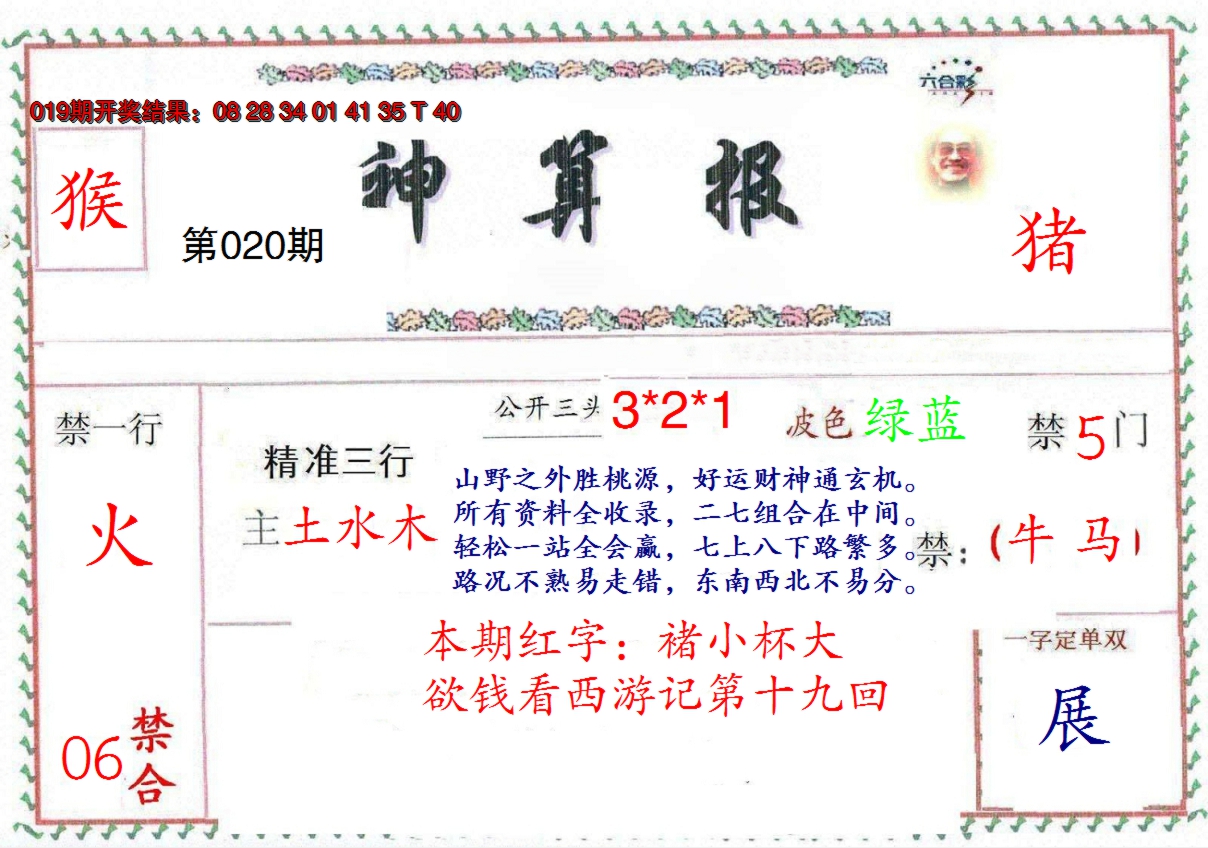 六合彩
019期开奖结果：08 28 34 01 41 35 T 40
神算报
猴
第020期
猪
禁一行
火
06禁合
精准三行
主土水木
公开三头 3*2*1
波色 绿蓝
禁5门
山野之外胜桃源，好运财神通玄机。
所有资料全收录，二七组合在中间。
轻松一站全会赢，七上八下路繁多。
路况不熟易走错，东南西北不易分。
禁：（牛 马）
本期红字：褚小杯大
欲钱看西游记第十九回
一字定单双
展